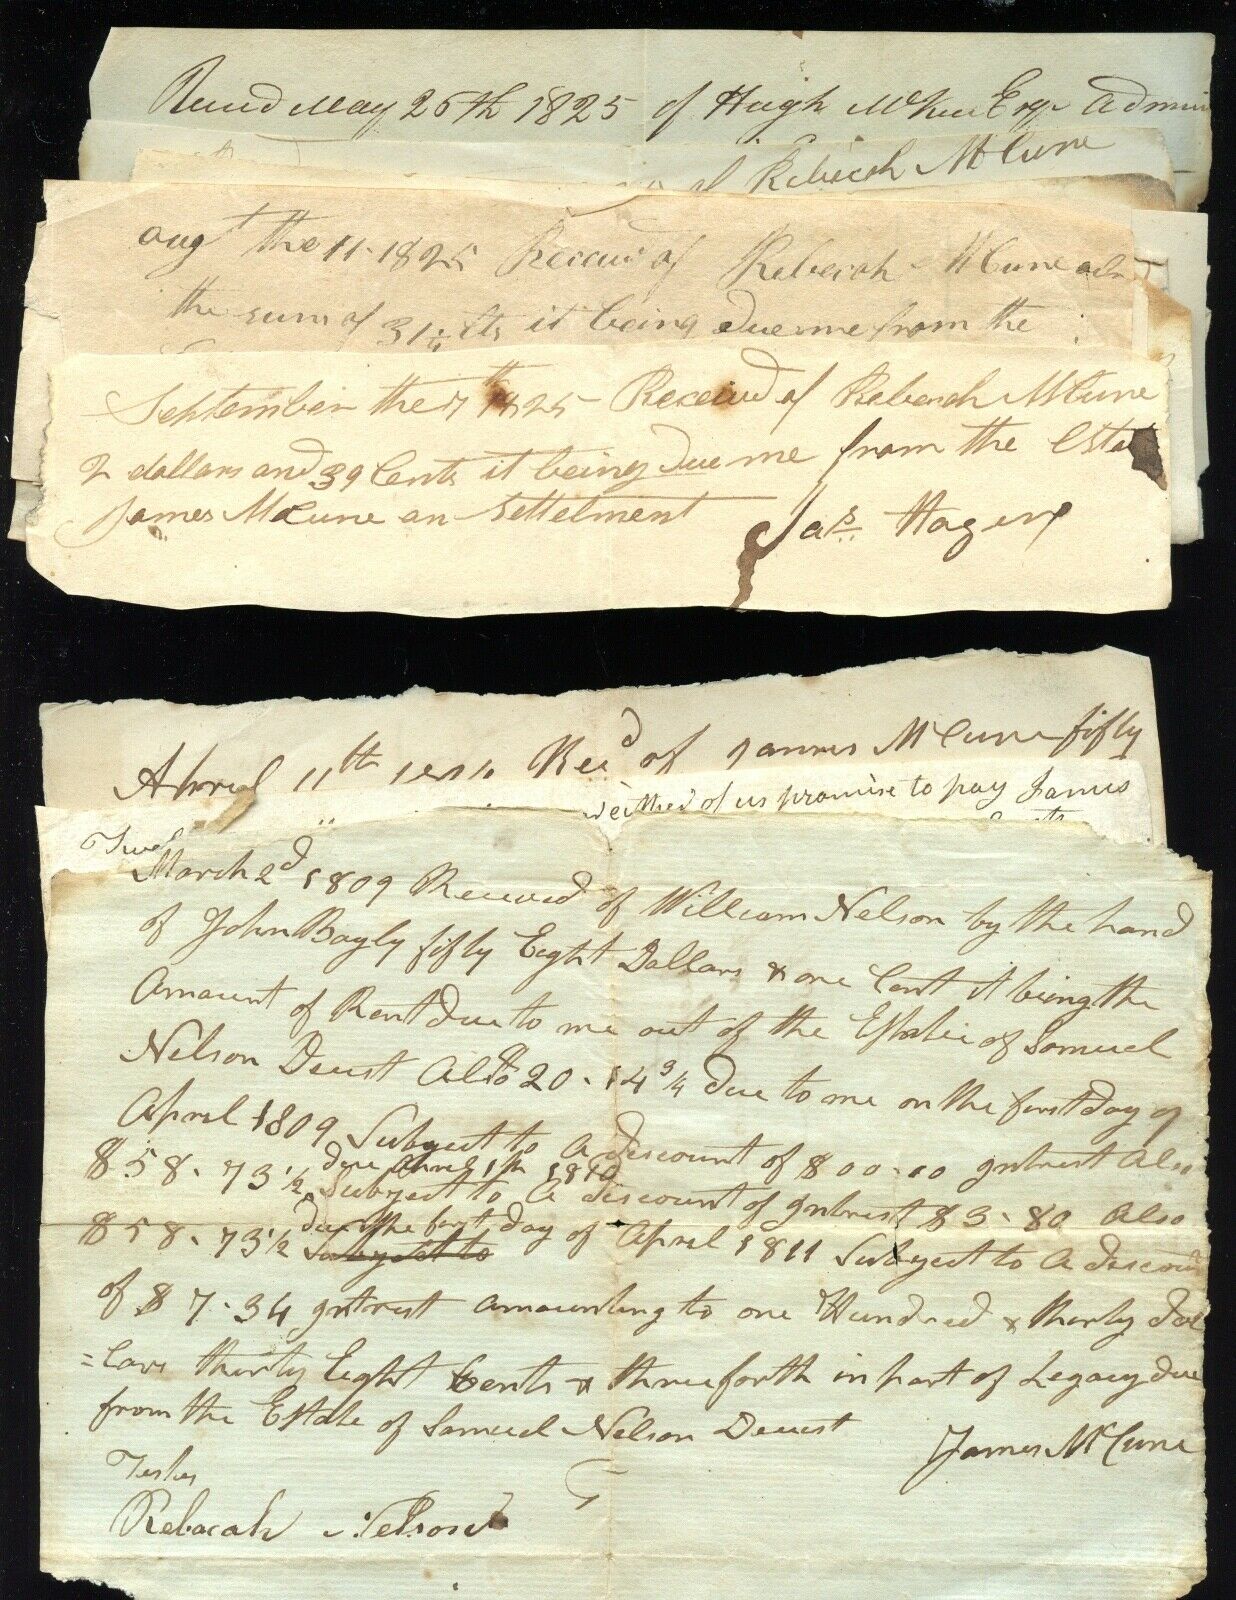 May 26th 1825 of Hugh McKee Esqr Admin
of Rebecah McCune
augt the 11 1825 Receivd of Rebecah McCune
the sum of 31¼ cts it being due me from the
September the 7th 1825 Received of Rebecah McCune
2 dollars and 39 Cents it being due me from the Esta
James McCune on Settelment
Jas Hagen
11th Recd of James McCune fifty
either of us promise to pay James
Twe
March 2d 1809 Received of William Nelson by the hand
of John Bayly fifty Eight Dollars & one Cent it being the
Amount of Rent due to me out of the Estate of Samuel
Nelson Decest Also $20-14¾ due to me on the first day of
April 1809 Subject to A discount of $00-00 Intrest Also
due April 1st 1810
$58-73½ Subject to A discount of Intrest $3-80 Also
due the first day of April 1811 Subject to A discoun
$58-73½ Subject to
of $7-34 Intrest amounting to one Hundred & thirty dol
=lars thirty Eight Cents & three forth in part of Legacy due
from the Estate of Samuel Nelson Decest
James McCune
Testes
Rebacah Nelson